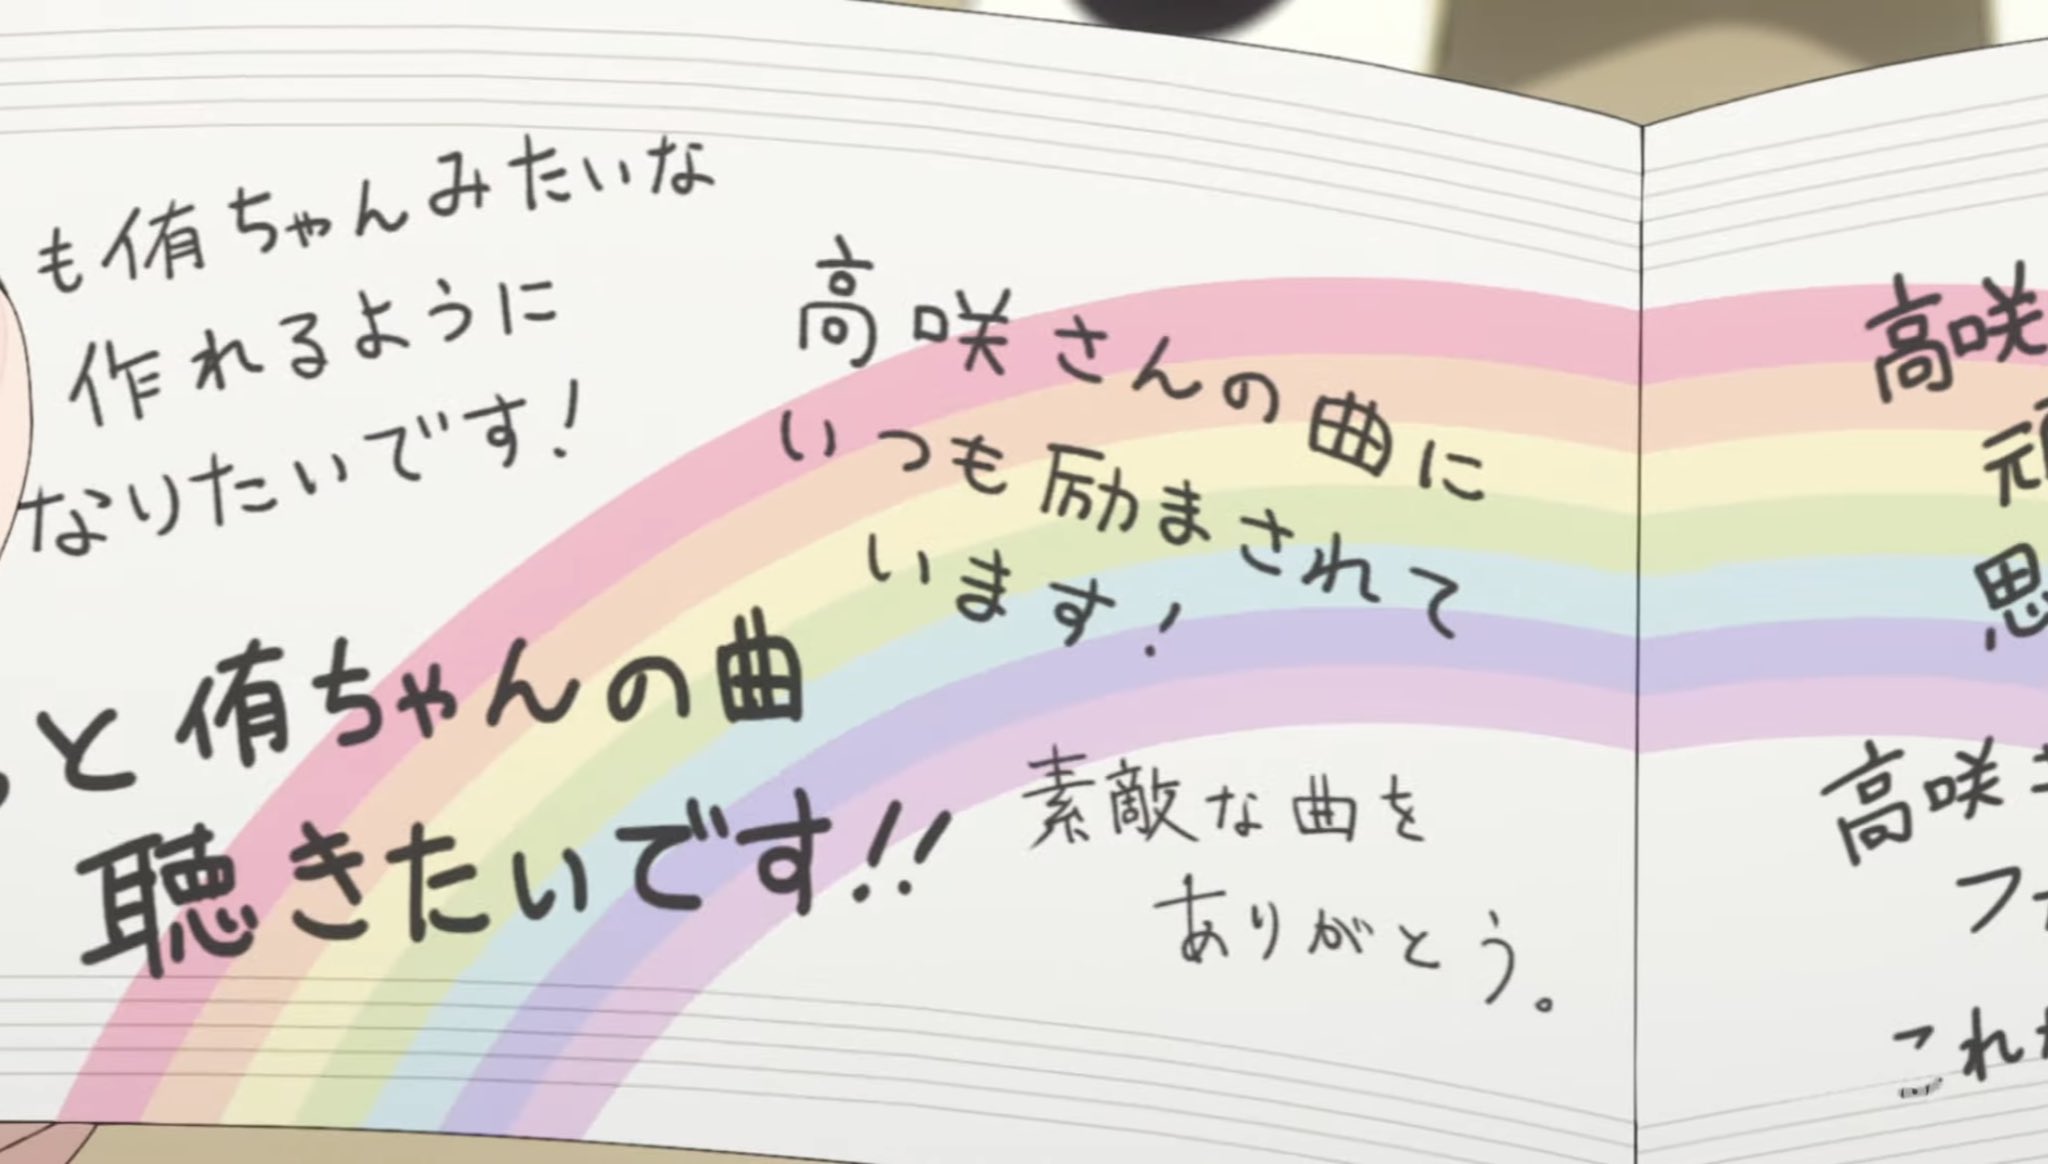 も侑ちゃんみたいな
作れるように
なりたいです！
高咲さんの曲に
いつも励まされて
います！
と侑ちゃんの曲
聴きたいです！！
素敵な曲を
ありがとう。
高咲
頑
思
高咲さ
ファ
これか